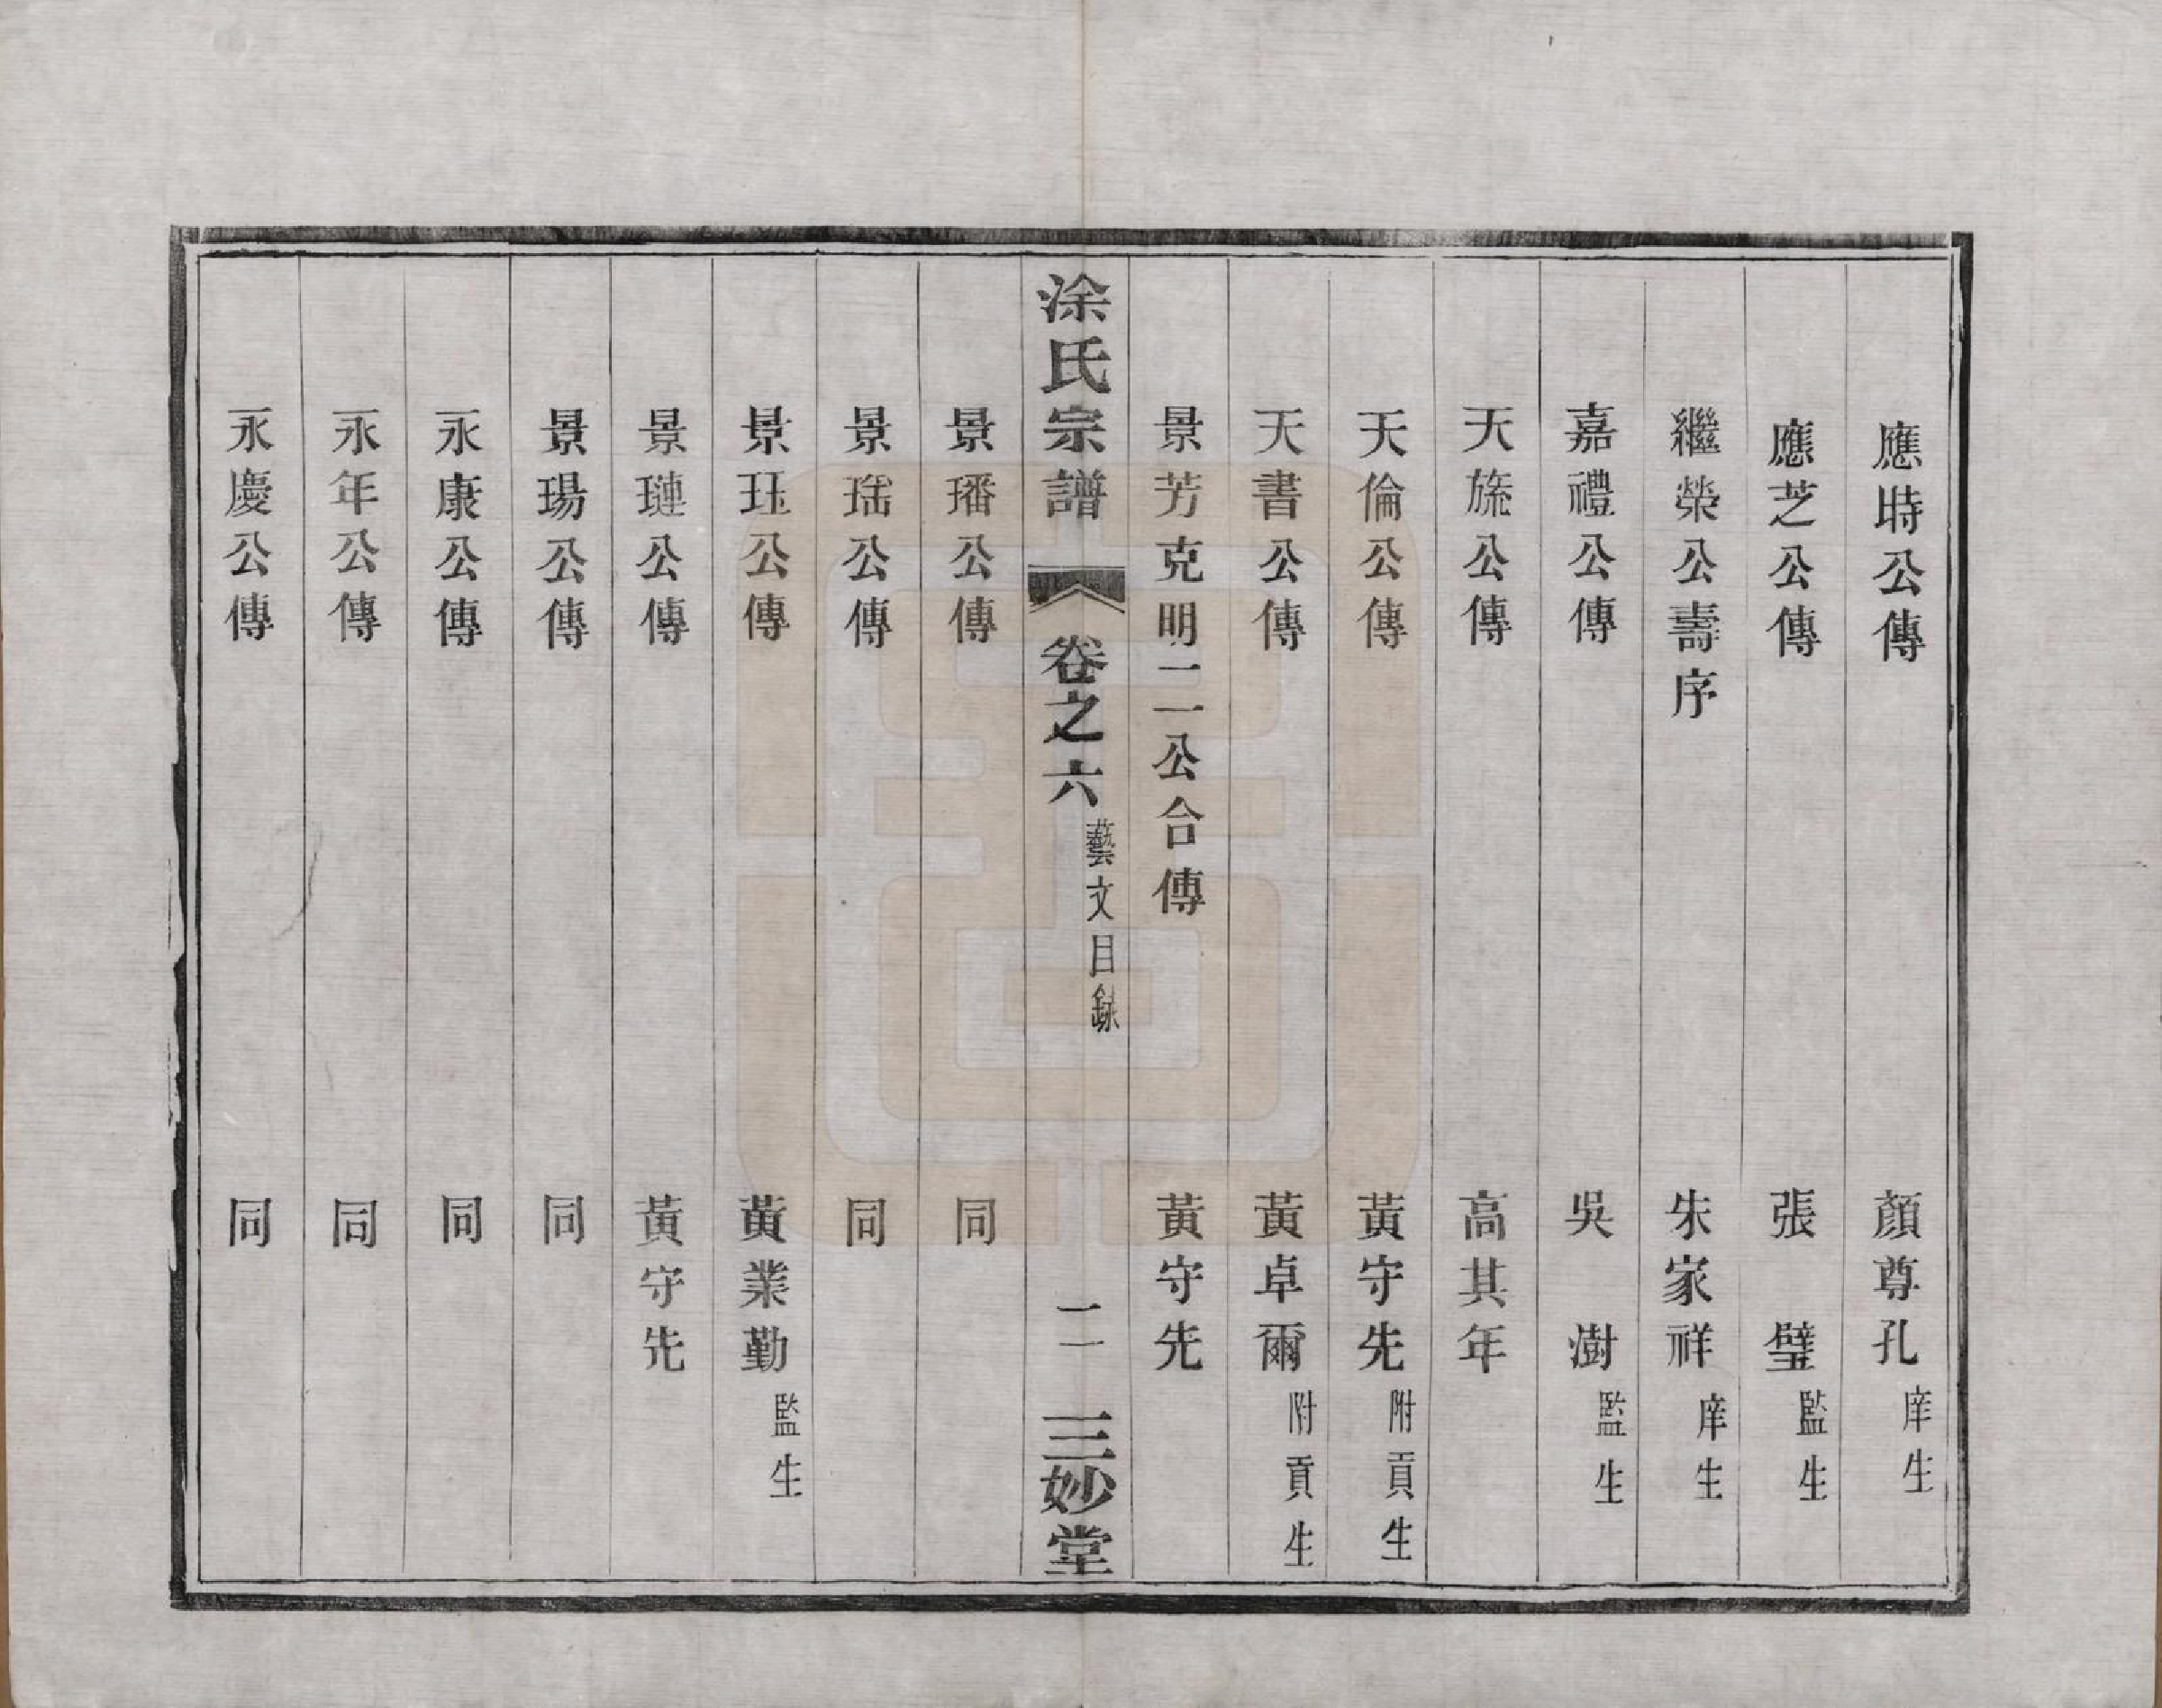 應時公傳 顏尊孔 庠生
應芝公傳 張 璧 監生
繼榮公壽序 朱家祥 庠生
嘉禮公傳 吳 澍 監生
天旒公傳 高其年
天倫公傳 黃守先 附貢生
天書公傳 黃卓爾 附貢生
景芳克明二公合傳 黃守先
涂氏宗譜 卷之六 藝文目錄 二 三妙堂
景璠公傳 同
景瑶公傳 同
景珏公傳 黃業勤 監生
景璉公傳 黃守先
景瑒公傳 同
永康公傳 同
永年公傳 同
永慶公傳 同